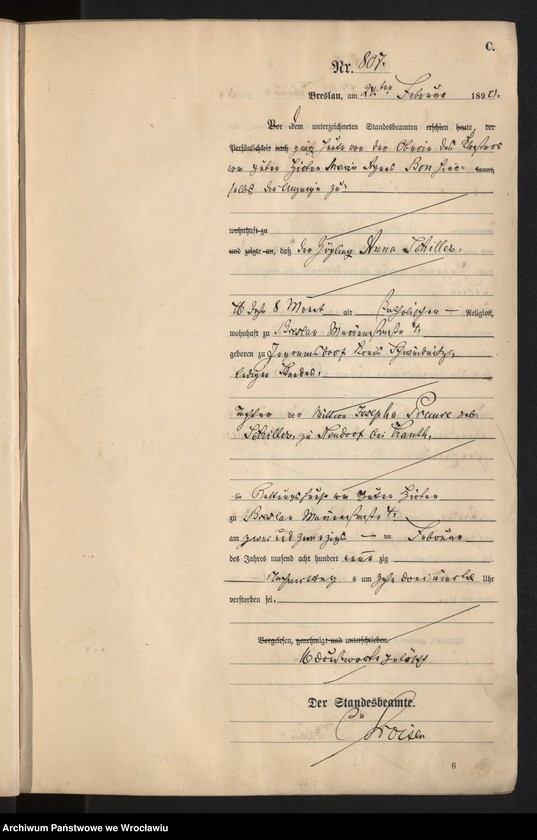 C.
Nr. 807.
Breslau, am 24ten Februar 1890.
Vor dem unterzeichneten Standesbeamten erschien heute, der
Persönlichkeit nach ging heute von der Oberin des Klosters
vom guten Hirten Maria Agnes Bon hier- kannt,
selbst die Anzeige zu
wohnhaft zu
und zeigte an, daß der Zögling Anna Schiller,
16 Jahr 8 Monat alt katholischer Religion,
wohnhaft zu Breslau
geboren zu Ingramsdorf Kreis Schweidnitz,
ledigen Standes,
Tochter der Wittwe Josepha geb.
Schiller, zu Neudorf bei Kanth,
zu Breslau
am zwei und zwanzigs ten Februar
des Jahres tausend acht hundert neun zig
Nachmittag s um drei viertel Uhr
verstorben sei.
Vorgelesen, genehmigt und unterschrieben.
16 Druckworte gelöscht
Der Standesbeamte.
6
Archiwum Państwowe we Wrocławiu